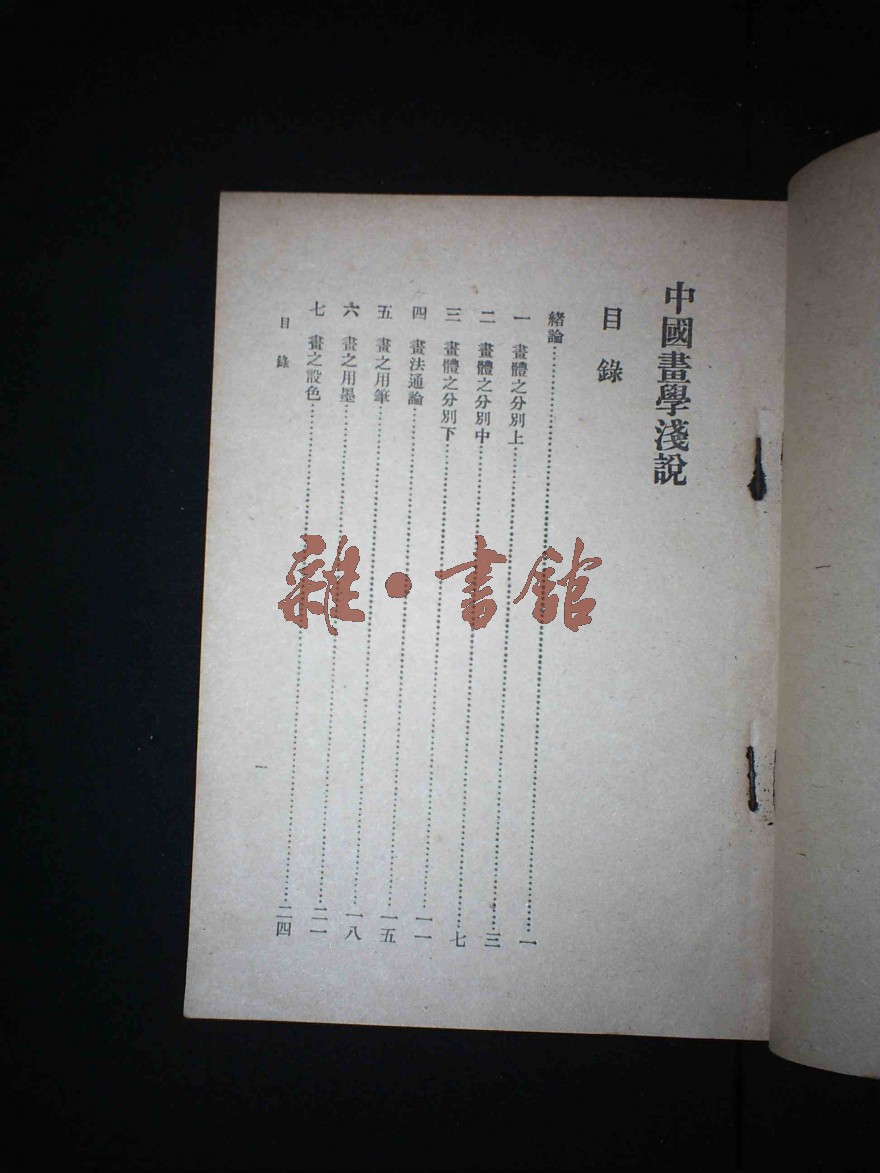 中國畫學淺說
目錄
緒論……一
一 畫體之分別上……三
二 畫體之分別中……七
三 畫體之分別下……一一
四 畫法通論……一五
五 畫之用筆……一八
六 畫之用墨……二一
七 畫之設色……二四
目錄
一
雜·書館